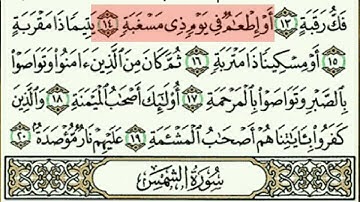 فَكُّ رَقَبَةٍ ١٣ أَوْ إِطْعَٰمٌ فِى يَوْمٍ ذِى مَسْغَبَةٍ ١٤ يَتِيمًا ذَا مَقْرَبَةٍ
١٥ أَوْ مِسْكِينًا ذَا مَتْرَبَةٍ ١٦ ثُمَّ كَانَ مِنَ ٱلَّذِينَ ءَامَنُوا۟ وَتَوَاصَوْا۟
بِٱلصَّبْرِ وَتَوَاصَوْا۟ بِٱلْمَرْحَمَةِ ١٧ أُو۟لَٰٓئِكَ أَصْحَٰبُ ٱلْمَيْمَنَةِ ١٨ وَٱلَّذِينَ
كَفَرُوا۟ بِـَٔايَٰتِنَا هُمْ أَصْحَٰبُ ٱلْمَشْـَٔمَةِ ١٩ عَلَيْهِمْ نَارٌ مُّؤْصَدَةٌۢ ٢٠
سُورَةُ الشَّمْسِ